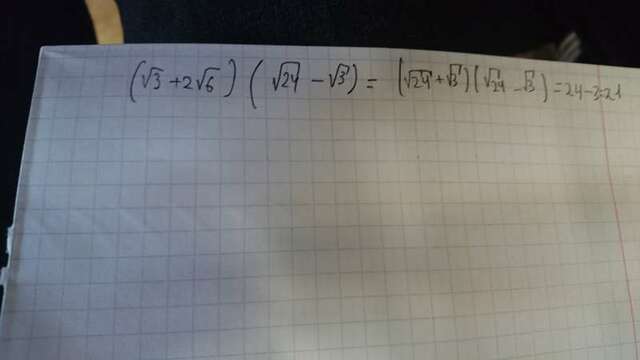 (√3 + 2√6) (√24 − √3) = (√24 + √3)(√24 − √3) = 24 − 3 = 21